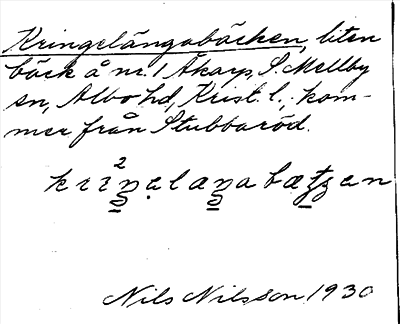 Kringelängabäcken, liten
bäck å nr. 1 Åkarp, S. Mellby
sn, Albo hd, Krist. l., kom-
mer från Stubbaröd.
Nils Nilsson 1930